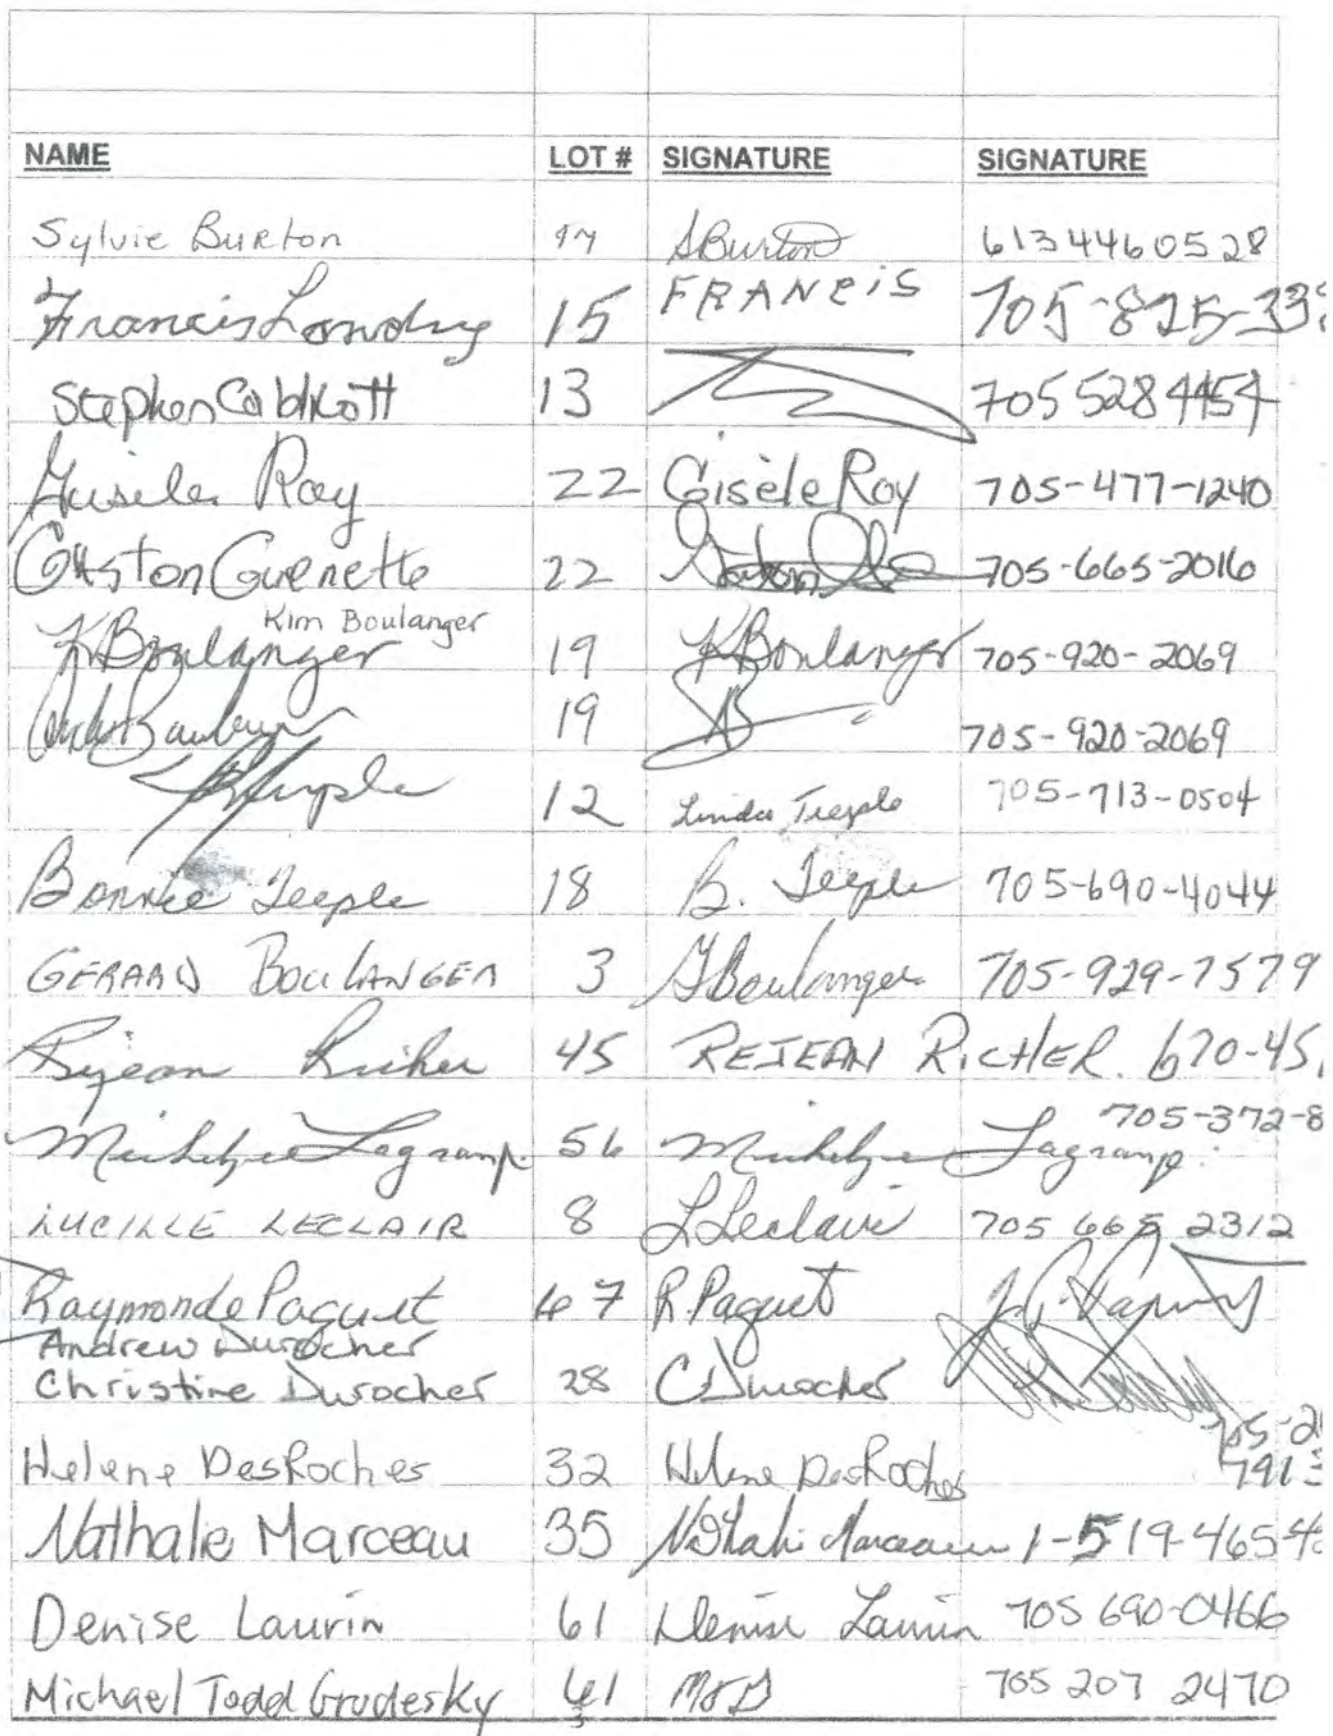 NAME LOT # SIGNATURE SIGNATURE
Sylvie Burton SBurton 6134460528
Francis Landry 15 FRANCIS 705-825-33
Stephen 13 705 528 4454
Gisele Roy 22 Gisèle Roy 705-477-1240
Gaston Guenette 22 Gaston 705-665-2016
Kim Boulanger
KBoulanger 19 KBoulanger 705-920-2069
19 705-920-2069
12 Linda Teeple 705-713-0504
Bonnie Teeple 18 B. Teeple 705-690-4044
GERARD BOULANGER 3 GBoulanger 705-929-7579
Rejean Richer 45 REJEAN RICHER. 670-45
705-372-8
Lagramp. 56 Lagramp.
LUCILLE LECLAIR 8 LLeclair 705 665 2312
Raymonde Paquet 67 R. Paquet
Andrew Durocher
Christine Durocher 28 CDurocher
05-2
Helene DesRoches 32 Helene DesRoches 791
Nathalie Marceau 35 Nathalie Marceau 1-519-465-4
Denise Laurin 61 Denise Laurin 705 690-0466
Michael Todd Grudesky 61 705 207 2470